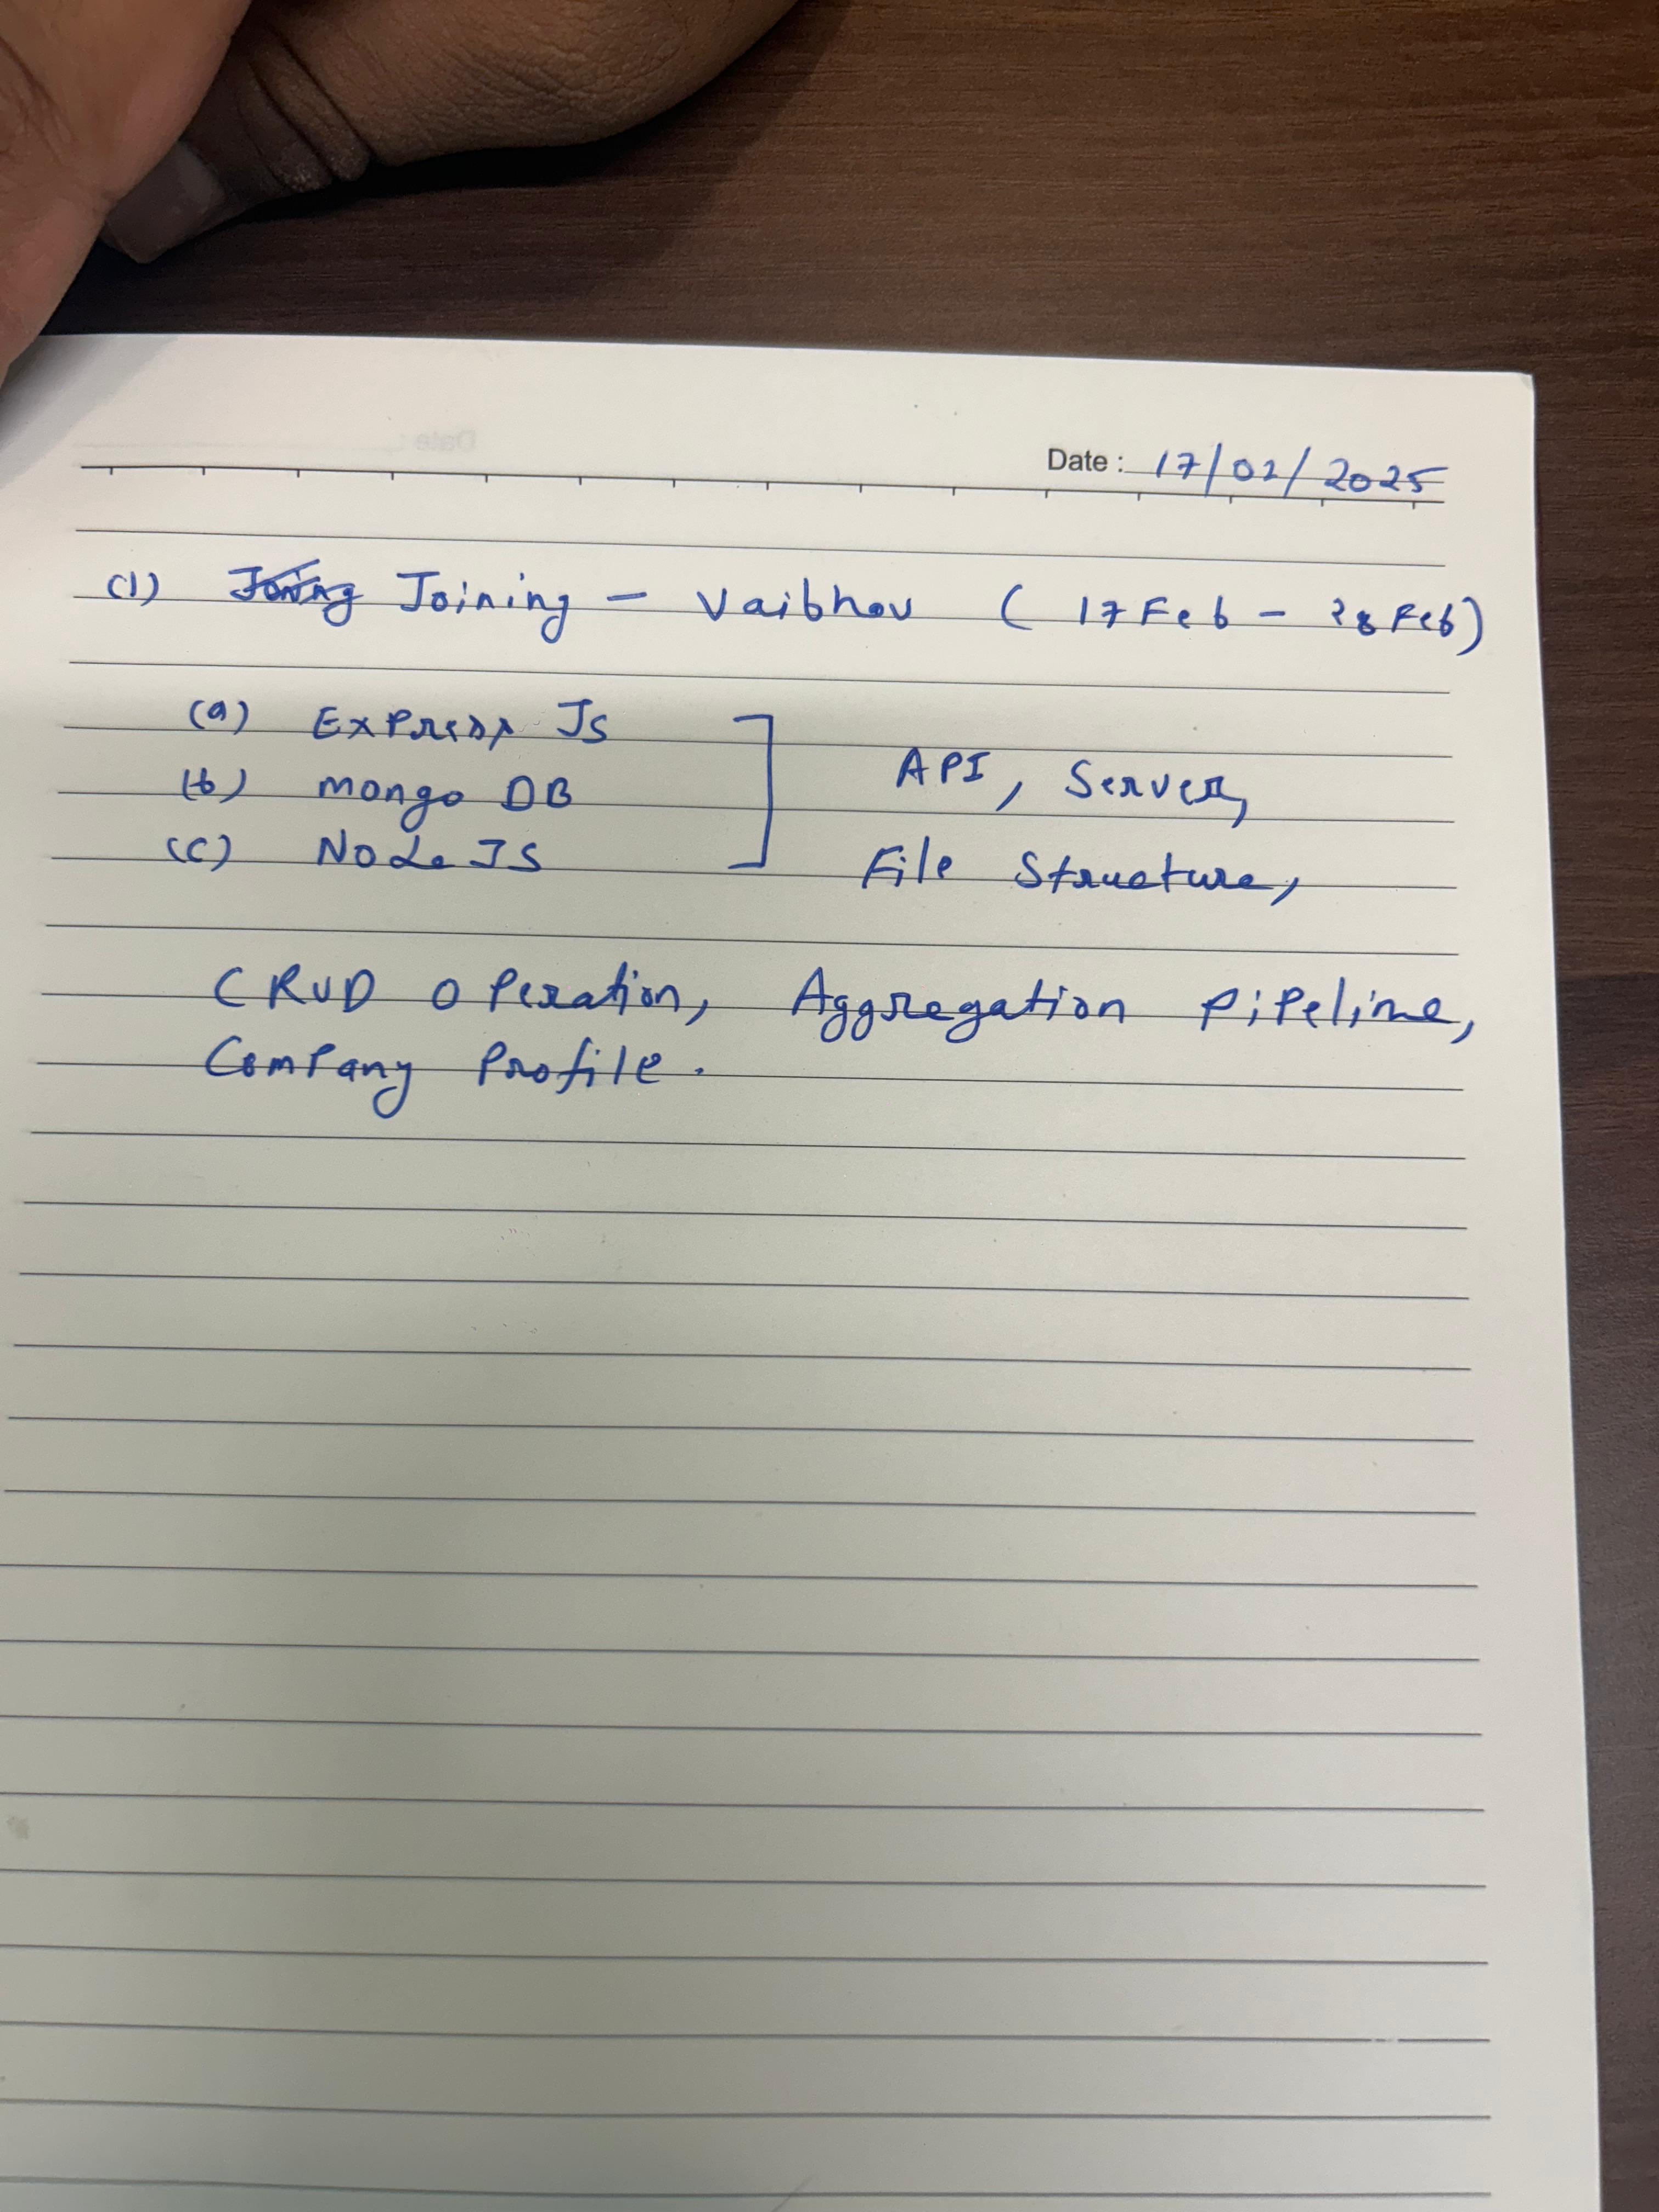 Date : 17/02/2025
(1) Joining - Vaibhav ( 17 Feb - 28 Feb)
(a) Express Js
(b) Mongo DB
(c) Node JS
] API, Server,
File Structure,
CRUD Operation, Aggregation Pipeline,
Company Profile.